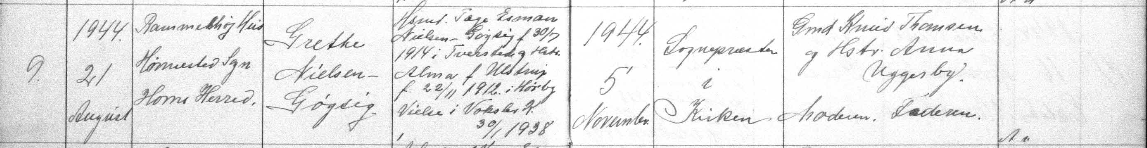 9.
1944.
21
August
Rammelhøj Huse
Hørmested Sgn
Horns Herred.
Grethe
Nielsen-
Gøgsig
Hsmd. Tage Esman
Nielsen-Gøgsig f. 30/7
1914 i Tversted og Hstr.
Alma f.
f. 22/11 1912 i Hørby
Vielse i Volstrup K.
30/1 1938
1944.
5
November
Sognepræsten
i
Kirken
Gmd Knud Thomsen
og Hstr. Anna
Uggerby.
Moderen. Faderen.